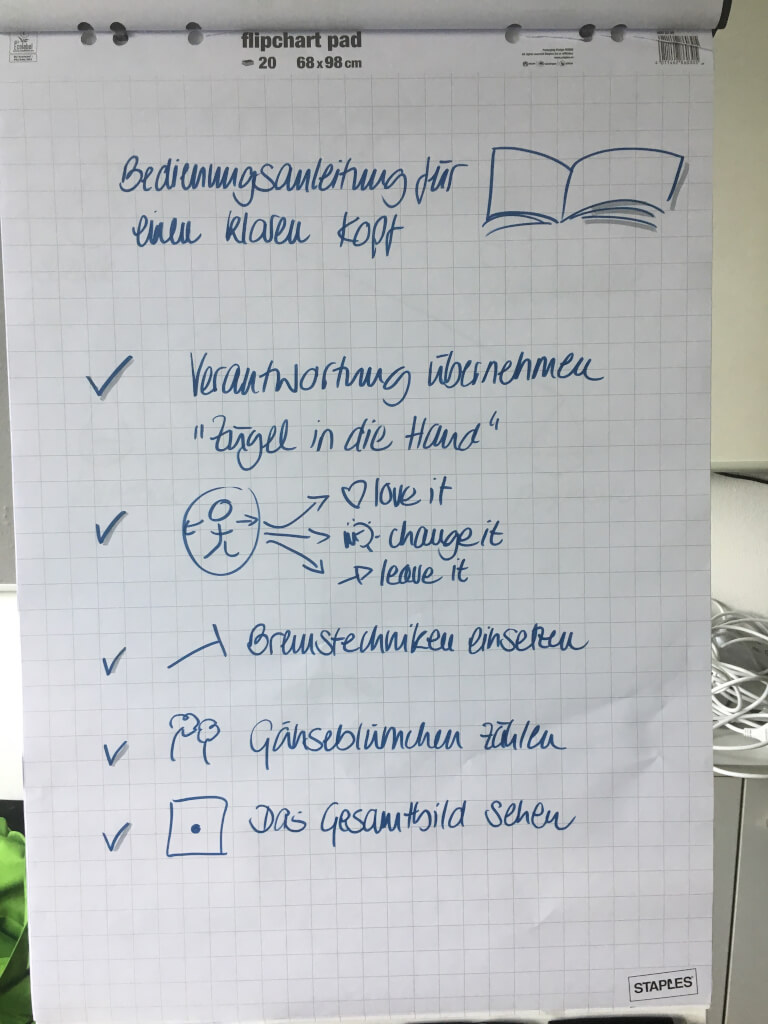 flipchart pad
20 68 x 98 cm
Bedienungsanleitung für
einen klaren Kopf
Verantwortung übernehmen
"Zügel in die Hand"
love it
change it
leave it
Bremstechniken einsetzen
Gänseblümchen zählen
Das Gesamtbild sehen
STAPLES